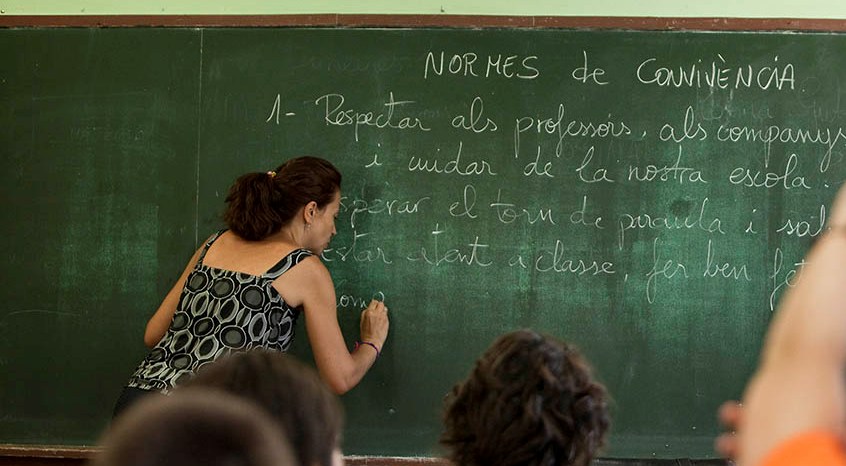 NORMES de CONVIVÈNCIA
1- Respectar als professors, als companys
i cuidar de la nostra escola.
perar el torn de paraula i sal
estar atent a classe, fer ben fet